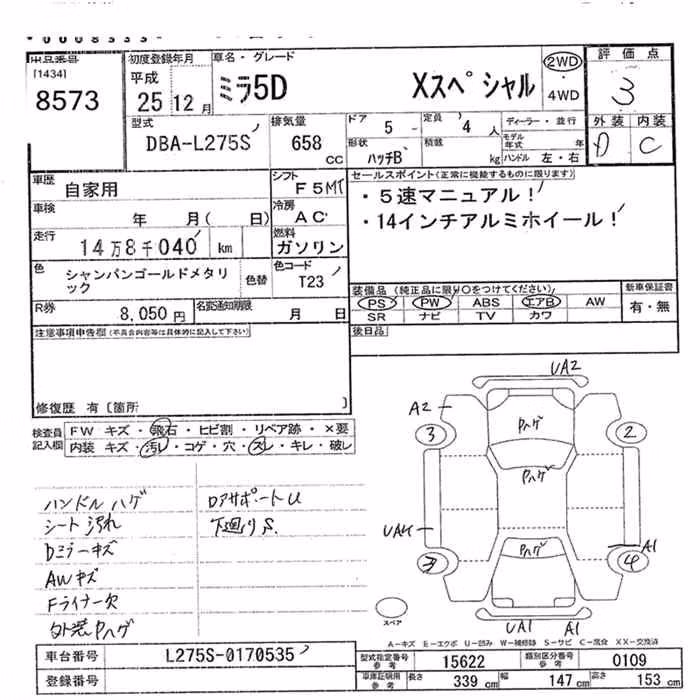 *0008533*
出品番号 初度登録年月 車名・グレード 評価点
[1434] 平成 ミラ5D Xスペシャル 2WD 3
8573 25年12月 ・4WD
型式 排気量 ドア 5 定員 4人 ディーラー・並行 外装 内装
DBA-L275S 658 CC 形状 ハッチB 積載 kg モデル年式 年 D C
ハンドル 左・右
車歴 自家用 シフト F5MT セールスポイント(正常に機能するものに限ります)
車検 年 月( 日) 冷房 AC ・5速マニュアル!
走行 14万8千040 km 燃料 ガソリン ・14インチアルミホイール!
色 シャンパンゴールドメタリック 色替 色コード T23
装備品(純正品に限り○をつけてください) 新車保証書
R券 8,050円 名変通知期限 月 日 PS PW ABS エアB AW 有・無
SR ナビ TV カワ
注意事項申告欄(不具合内容等は具体的に記入して下さい) 後日品
修復歴 有〔箇所 〕
検査員記入欄 FW キズ・飛石・ヒビ割・リペア跡・×要
内装 キズ・汚レ・コゲ・穴・スレ・キレ・破レ
ハンドルハゲ Dアサポート U
シート汚れ 下廻り S
Dミラーキズ
AWキズ
Fライナー欠
外装Pハゲ
UA2
A2
Pハゲ
3 2
Pハゲ
UA4
A1
3 Pハゲ 4
スペア
UA1 A1
A-キズ E-エクボ U-凹み W-補修跡 S-サビ C-腐食 XX-交換済
車台番号 L275S-0170535 型式指定番号 参考 15622 類別区分番号 参考 0109
登録番号 車庫証明用 参考 長さ 339 cm 幅 147 cm 高さ 153 cm